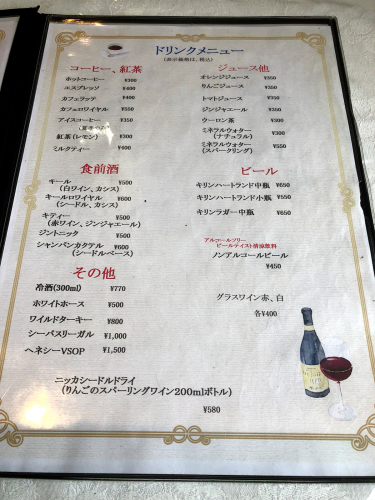 ドリンクメニュー
(表示価格は、税込)
コーヒー、紅茶
ホットコーヒー ¥300
エスプレッソ ¥400
カフェラッテ ¥400
カフェロワイヤル ¥550
アイスコーヒー ¥350
紅茶(レモン) ¥300
ミルクティー ¥400
ジュース他
オレンジジュース ¥350
りんごジュース ¥350
トマトジュース ¥350
ジンジャエール ¥350
ウーロン茶 ¥300
ミネラルウォター ¥300
(ナチュラル)
ミネラルウォター ¥350
(スパークリング)
食前酒
キール ¥500
(白ワイン、カシス)
キールロワイヤル ¥600
(シードル、カシス)
キティー ¥500
(赤ワイン、ジンジャエール)
ジントニック ¥500
シャンパンカクテル ¥600
(シードルベース)
ビール
キリンハートランド中瓶 ¥650
キリンハートランド小瓶 ¥550
キリンラガー中瓶 ¥650
アルコールフリー
ビールテイスト清涼飲料
ノンアルコールビール
¥450
その他
冷酒(300ml) ¥770
ホワイトホース ¥500
ワイルドターキー ¥800
シーバスリーガル ¥1,000
ヘネシーVSOP ¥1,500
グラスワイン赤、白
各¥400
ニッカシードルドライ
(りんごのスパーリングワイン200mlボトル)
¥580